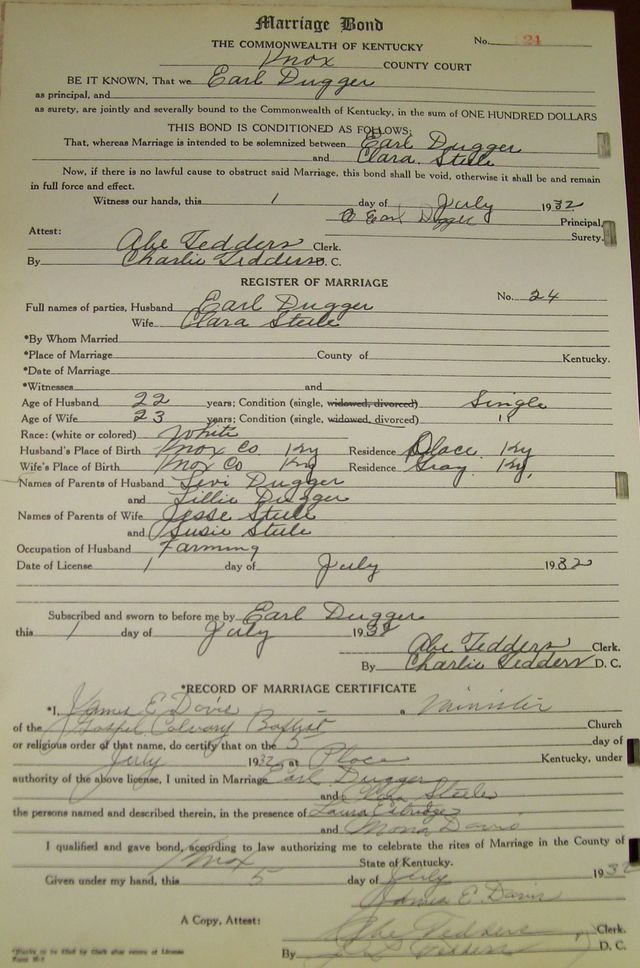 Marriage Bond
THE COMMONWEALTH OF KENTUCKY No. 24
Knox COUNTY COURT
BE IT KNOWN, That we Earl Dugger
as principal, and
as surety, are jointly and severally bound to the Commonwealth of Kentucky, in the sum of ONE HUNDRED DOLLARS
THIS BOND IS CONDITIONED AS FOLLOWS:
That, whereas Marriage is intended to be solemnized between Earl Dugger
and Clara Steele
Now, if there is no lawful cause to obstruct said Marriage, this bond shall be void, otherwise it shall be and remain
in full force and effect.
Witness our hands, this 1 day of July 1932
Earl Dugger Principal,
Surety.
Attest:
Abe Tedders Clerk.
By Charlie Tedders D. C.
REGISTER OF MARRIAGE
No. 24
Full names of parties, Husband Earl Dugger
Wife Clara Steele
*By Whom Married
*Place of Marriage County of Kentucky.
*Date of Marriage
*Witnesses and
Age of Husband 22 years; Condition (single, widowed, divorced) Single
Age of Wife 23 years; Condition (single, widowed, divorced) "
Race: (white or colored) White
Husband's Place of Birth Knox Co Ky Residence Place Ky
Wife's Place of Birth Knox Co Ky Residence Gray Ky,
Names of Parents of Husband Levi Dugger
and Lillie Dugger
Names of Parents of Wife Jesse Steele
and Susie Steele
Occupation of Husband Farming
Date of License 1 day of July 1932
Subscribed and sworn to before me by Earl Dugger
this 1 day of July 1932
Abe Tedders Clerk.
By Charlie Tedders D. C.
*RECORD OF MARRIAGE CERTIFICATE
*I, James E Davis a Minister
of the Gospel Calvary Baptist Church
or religious order of that name, do certify that on the 5 day of
July 1932, at Place Kentucky, under
authority of the above license, I united in Marriage Earl Dugger
and Clara Steele
the persons named and described therein, in the presence of Laura Estridge
and Mona Davis
I qualified and gave bond, according to law authorizing me to celebrate the rites of Marriage in the County of
Knox State of Kentucky.
Given under my hand, this 5 day of July 1932
James E. Davis
A Copy, Attest: Abe Tedders Clerk.
By Tedders D. C.
*Blanks to be filled by Clerk after return of License